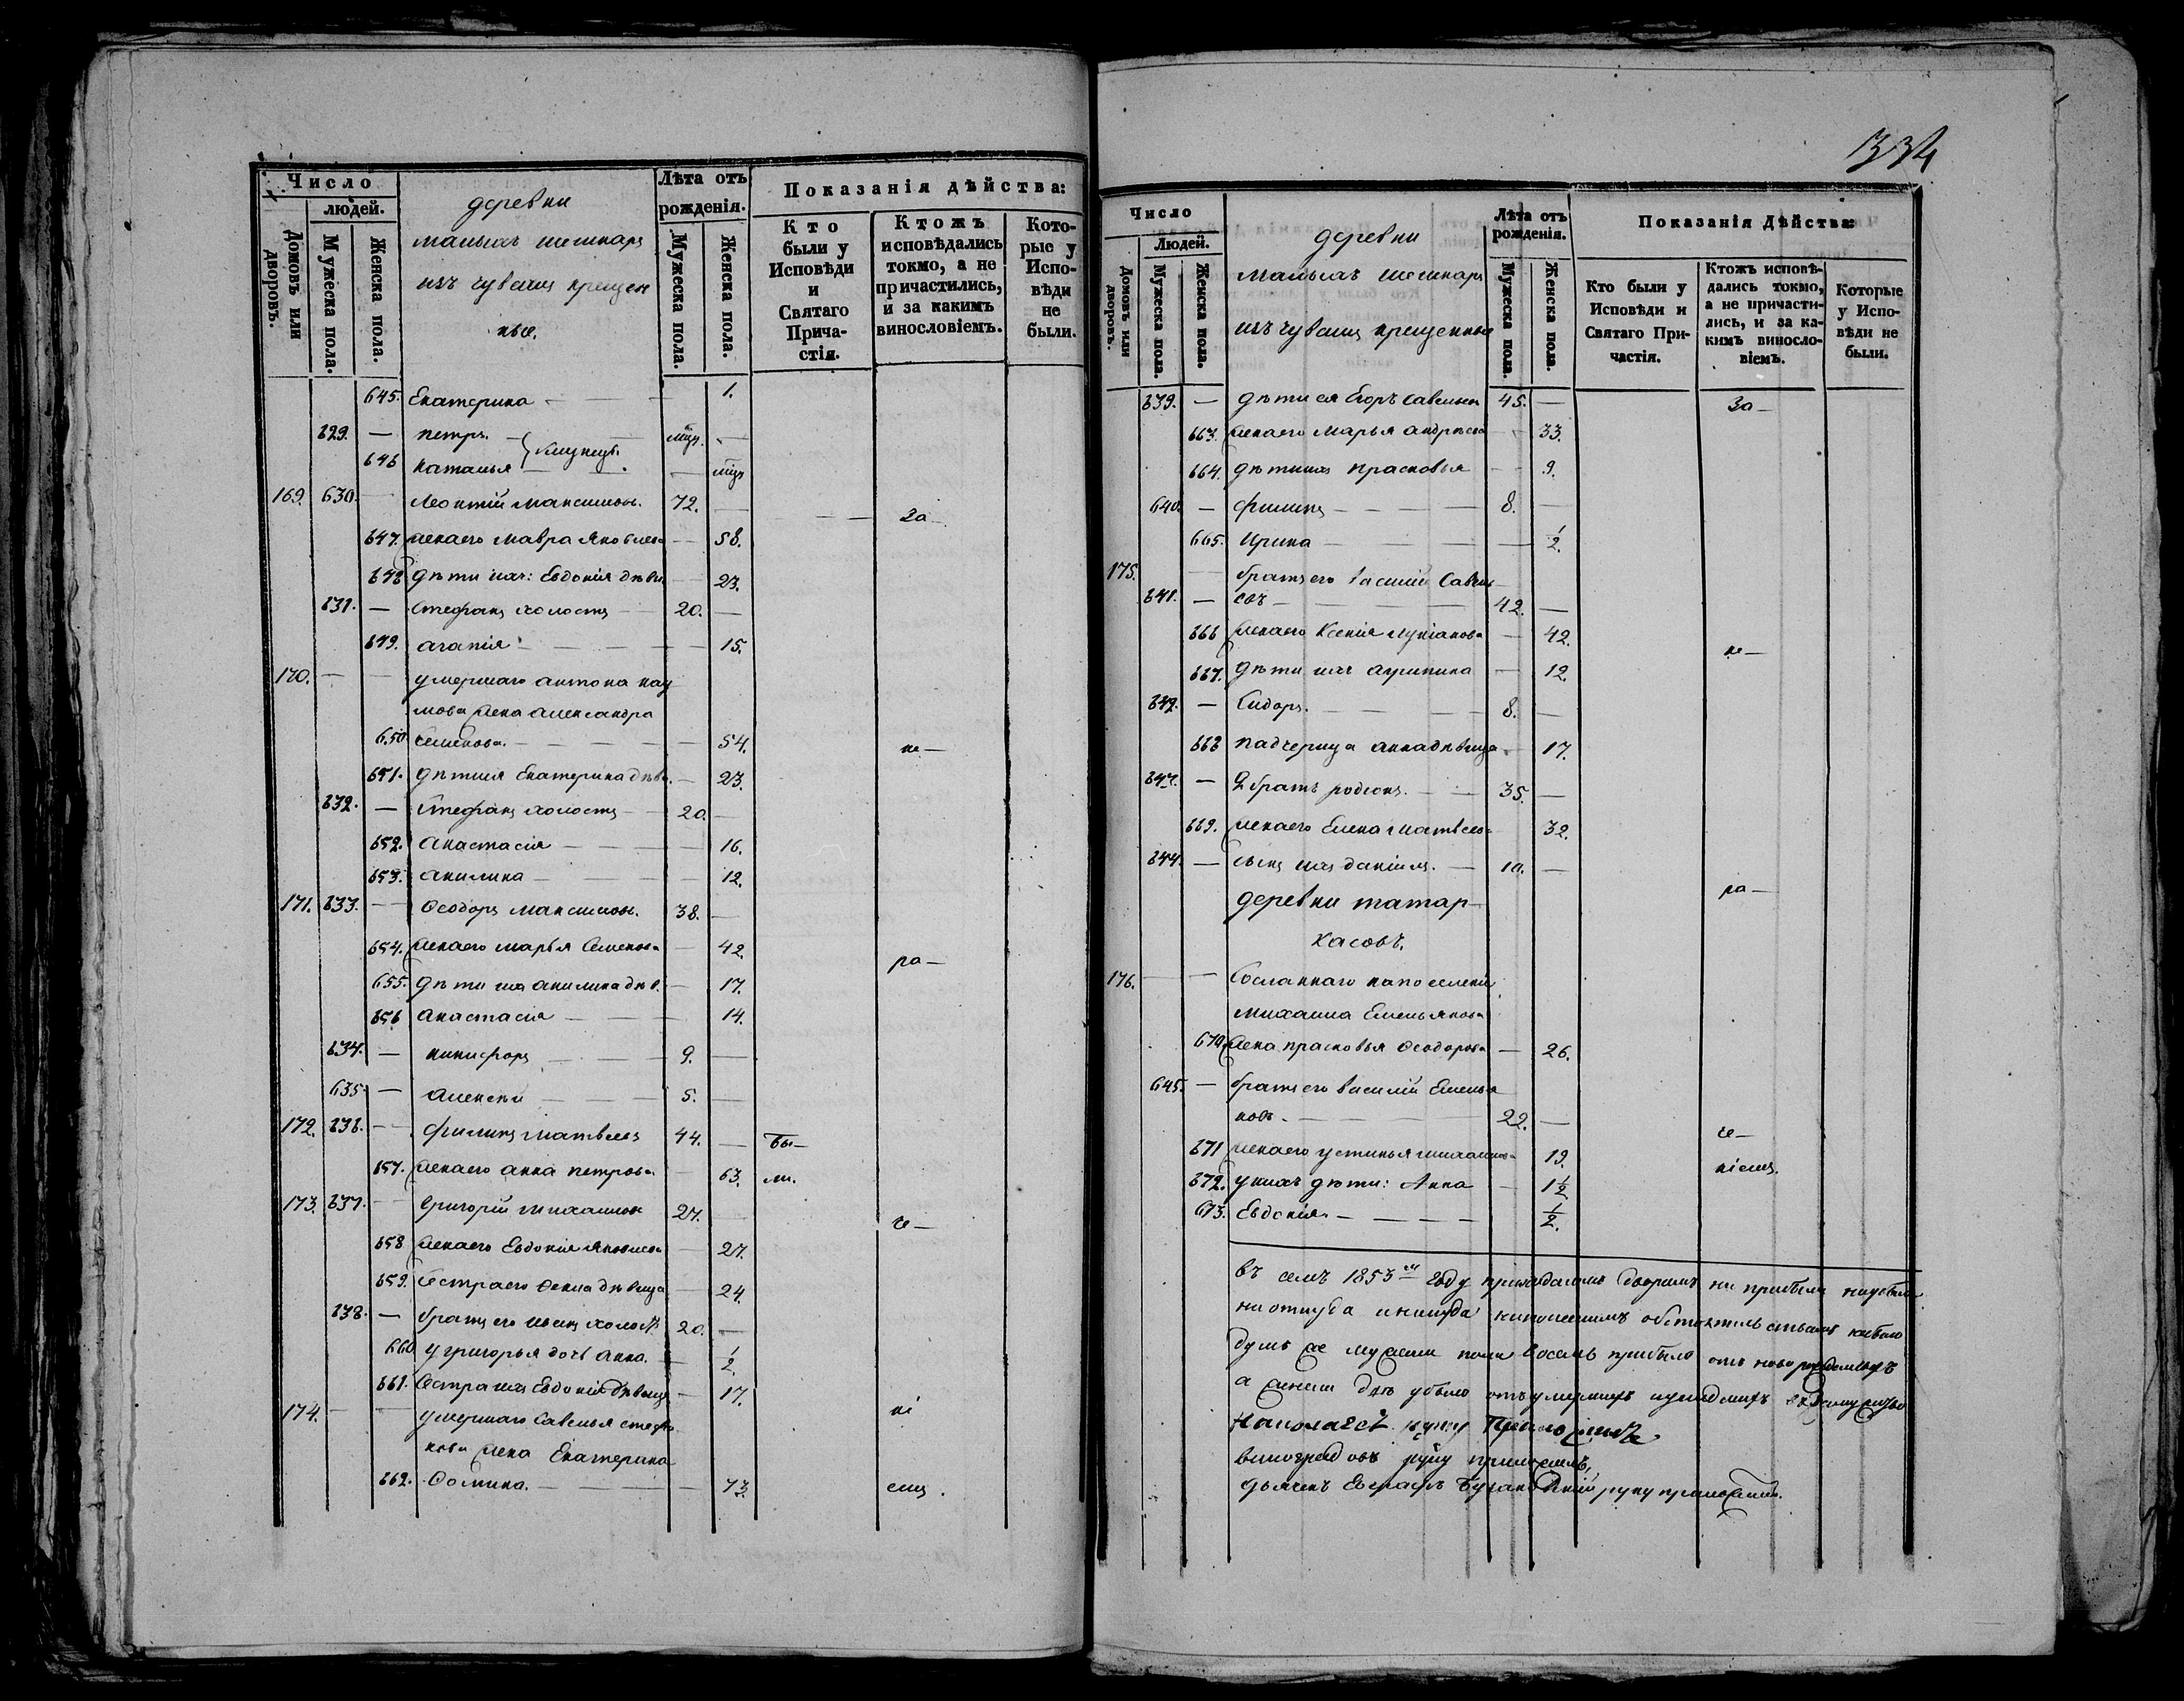 Число
людей.
Домовъ или дворовъ.
Мужеска пола.
Женска пола.
деревни
малыхъ шешкаръ
изъ чувашъ крещен
ные.
Лѣта отъ
рожденія.
Мужеска пола.
Женска пола.
Показанія дѣйства:
Кто
были у
Исповѣди
и
Святаго
Прича-
стія.
Ктожъ
исповѣдались
токмо, а не
причастились,
и за какимъ
винословіемъ.
Кото-
рые у
Испо-
вѣди
не
были.
645. Екатерина — 1.
629. — петръ. —
646 наталья —
169. 630. — Леонтій Максимовъ. 72. — За —
647. женаего мавра Яковлева — 58.
648 дѣти ихъ: Евдокія дѣви. — 23.
631. — Стефанъ холостъ — 20. —
649. агапія — 15.
170. — умершаго антона нау
мова жена александра
650 семенова. — 54. не —
651. дѣтиея Екатерина дѣви. — 23.
632. — Стефанъ холостъ — 20. —
652. анастасія — 16.
653. акилина — 12.
171. 633. — Ѳеодоръ Максимовъ. 38. —
654. женаего марья Семенова — 42. ра —
655. дѣти ихъ акилина дѣв. — 17.
656 анастасія — 14.
634. — никифоръ — 9. —
635. — алексѣй — 5. —
172. 636. — филипъ матвѣевъ 44. — бы —
657. женаего анна петрова — 63. ли.
173. 637. — Григорій михаиловъ 27. — че —
658 женаего Евдокія Яковлева — 27.
659. Сестраего Ѳекла дѣвица — 24.
638. — братъ его иванъ холостъ 20. —
660 у григорья дочь анна. — 1/2.
661. Сестра ихъ Евдокія дѣвица — 17. ні
174. — умершаго Савелья стефа
нова жена Екатерина
662. Фомина. — 73. емъ.
334
Число
Людей.
Домовъ или дворовъ.
Мужеска пола.
Женска пола.
деревни
малыхъ шешкаръ
изъ чувашъ крещенные
Лѣта отъ
рожденія.
Мужеска пола.
Женска пола.
Показанія Дѣйства:
Кто были у
Исповѣди и
Святаго При-
частія.
Ктожъ исповѣ-
дались токмо,
а не причасти-
лись, и за ка-
кимъ виносло-
віемъ.
Которые
у Испо-
вѣди не
были.
639. — дѣти ея Егоръ Савельевъ 45. — За —
663. женаего Марья андреева — 33.
664. дѣтиихъ прасковья — 9.
640. — филипъ — 8. —
665. Ирина — 1/2.
175. — братъ его василій Савель
641. — евъ — 42. —
666 женаего Ксенія лукіанова — 42. не —
667. дѣти ихъ агрипина — 12.
642. — Сидоръ. — 8. —
668 падчерица анна дѣвица — 17.
643. — 2 братъ родіонъ. — 35. —
669. женаего Елена матвѣева 32.
644. — сынъ ихъ даніилъ. — 10. — ра —
деревни татар
касовъ.
176. — Сосланнаго на поселеніе
михаила Емельянова
670. жена прасковья Ѳеодорова — 26.
645. — братъ его василій Емелья
новъ. — 22. — че —
671 женаего устинья михаилова 19. ніемъ.
672. у нихъ дѣти: Анна — 1 1/2
673. Евдокія. — 1/2.
въ семъ 1853 м году приходскихъ дворовъ ни прибыло ниубыло
ни откуда и никуда
душъ же мужеска пола восемь прибыло отъ новорожденныхъ
а женска убыло отъ умершихъ
Николай руку приложилъ
виноградовъ руку приложилъ,
дьячекъ руку приложилъ.